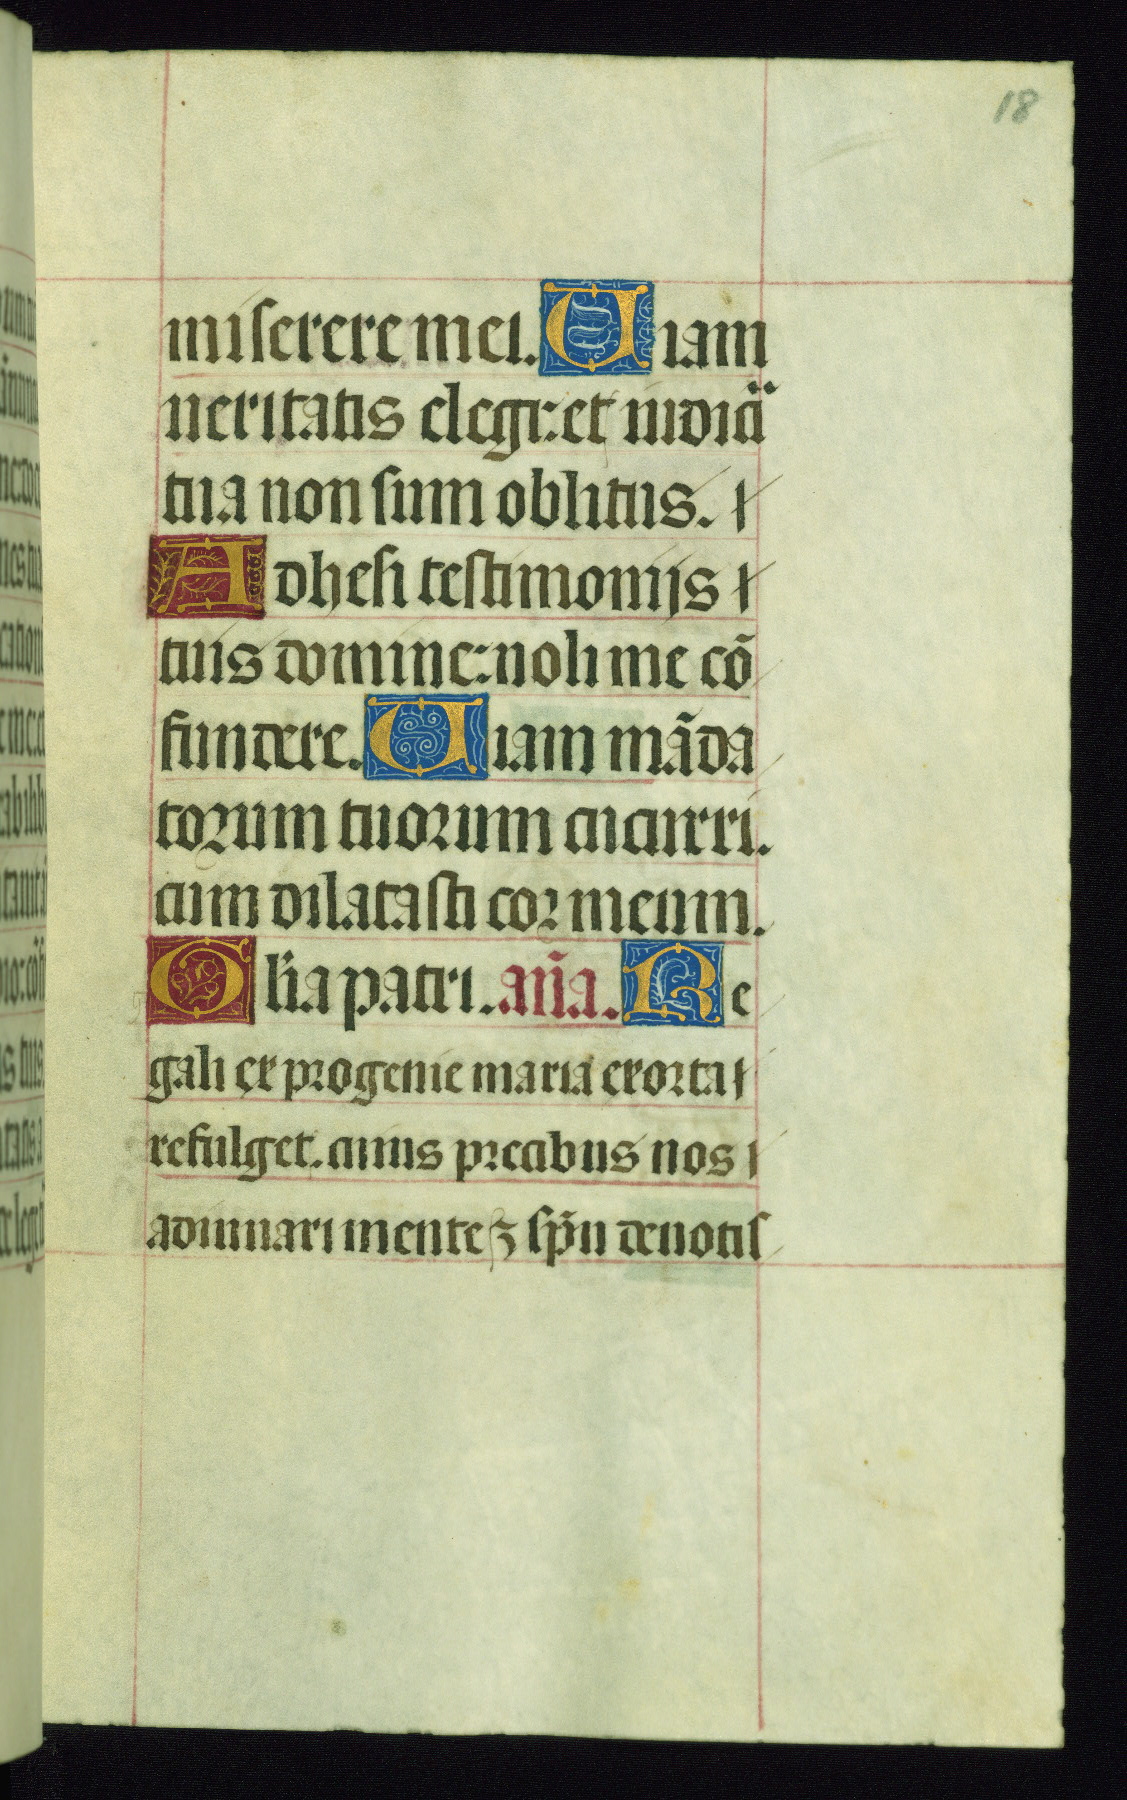 18
miserere mei. Uiam
ueritatis elegi: et iudicia
tua non sum oblitus.
Adhesi testimonijs
tuis domine: noli me cõ
fundere. Uiam mãda
torum tuorum cucurri.
cum dilatasti cor meum.
Glĩa patri. aña. Re
gali ex progenie maria exorta
refulget. cuius precibus nos
adiuuari mente ⁊ spũ deuotis